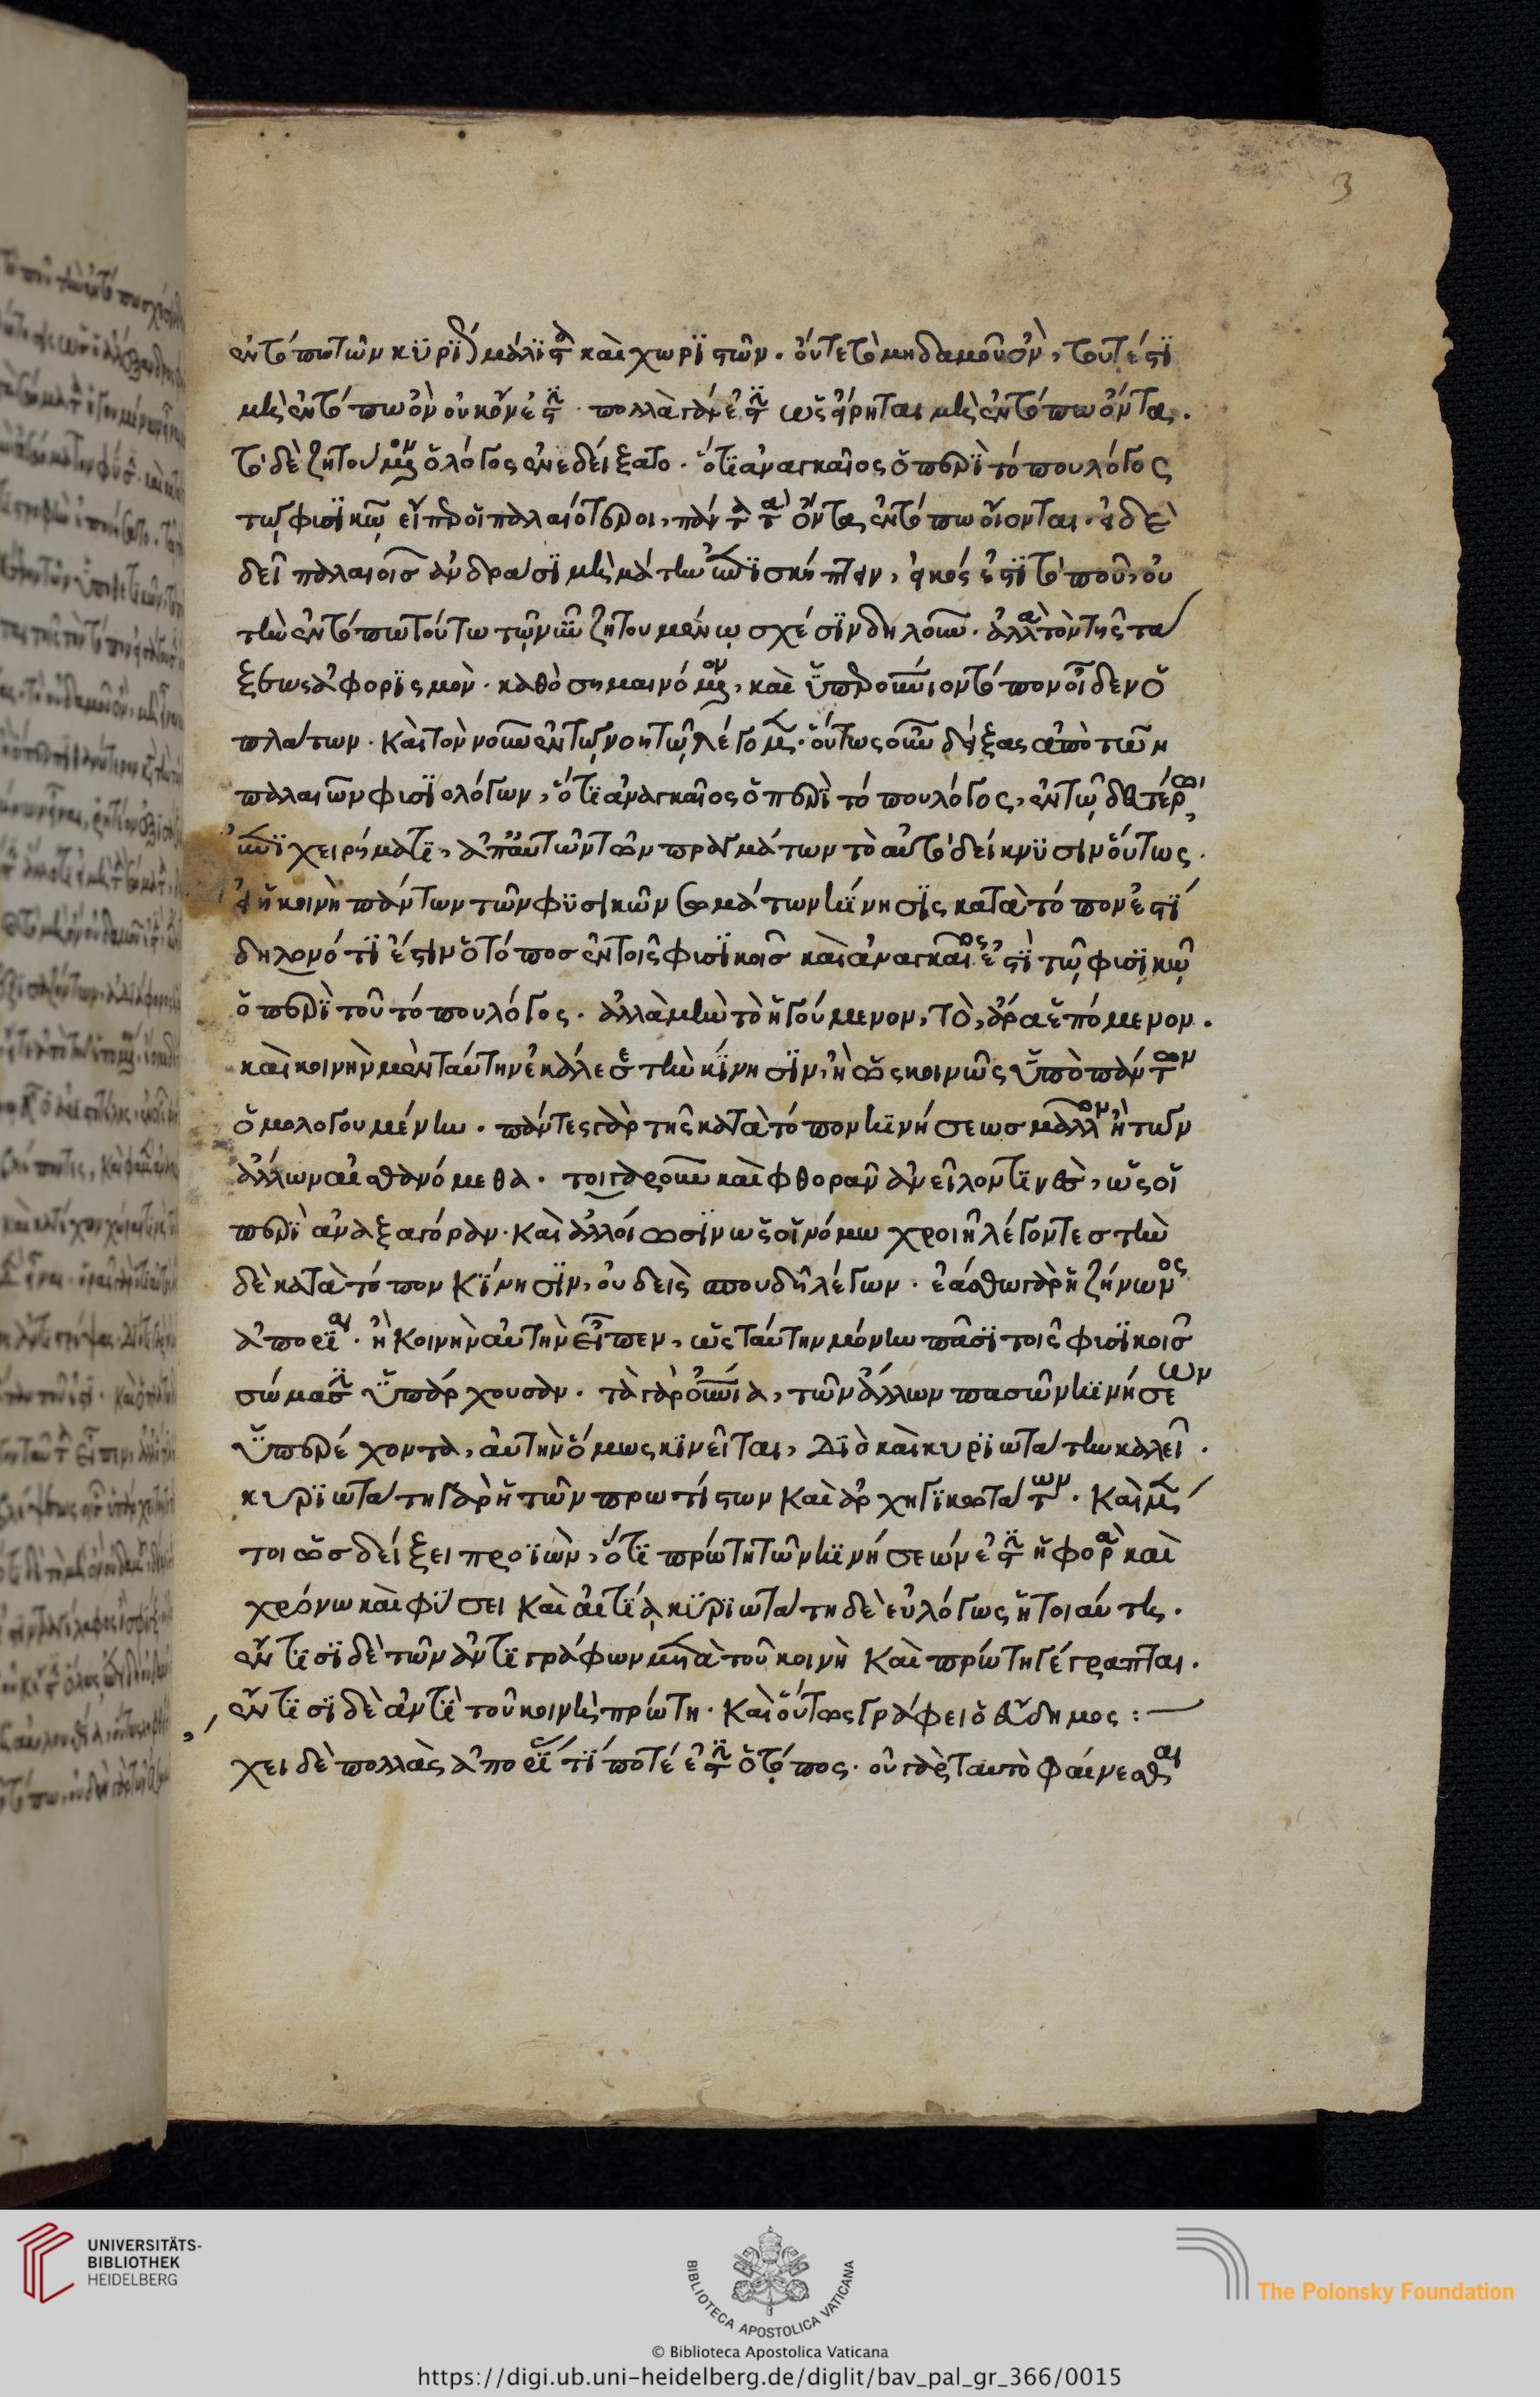 3
ἐν τόπω τῶν κυρίως μάλιστα καὶ χωριστῶν. οὔτε τὸ μηδαμοῦ ὂν, τουτέστι
μὴ ἐν τόπω ὂν οὐκοῦν ἐστι. πολλὰ γάρ ἐστιν ὡς εἴρηται μὴ ἐν τόπω ὄντα.
τὸ δὲ ζητούμενον ὁ λόγος ἐνεδείξατο. ὅτι ἀναγκαῖος ὁ περὶ τόπου λόγος
τῷ φυσικῷ εἴπερ οἱ παλαιότεροι, πάντα τὰ ὄντα ἐν τόπω οἴονται. εἰ δὲ
δεῖ παλαιοῖς ἀνδράσι μὴ μάτην ἐπισκήπτειν, εἰκός ἐστι τὸ ποῦ, οὐ
τὴν ἐν τόπω τούτω τῷ νῦν ζητουμένῳ σχέσιν δηλοῦν. ἀλλὰ τὸν τῆς τά
ξεως ἀφορισμὸν. καθὸ σημαινόμενον, καὶ ὑπερουράνιον τόπον οἶδεν ὁ
πλάτων. καὶ τὸν νοῦν ἐν τῷ νοητῷ λέγομεν. οὕτως οὖν δείξας ἀπὸ τῶν
παλαιῶν φυσιολόγων, ὅτι ἀναγκαῖος ὁ περὶ τόπου λόγος, ἐν τῷ δευτέρω
ἐπιχειρήματι, ἀπ' αὐτῶν τῶν πραγμάτων τὸ αὐτὸ δείκνυσιν οὕτως.
εἰ ἡ κοινὴ πάντων τῶν φυσικῶν σωμάτων κίνησις κατὰ τόπον ἐστί
δηλονότι ἔστιν ὁ τόπος ἐν τοῖς φυσικοῖς καὶ ἀναγκαῖός ἐστι τῷ φυσικῷ
ὁ περὶ τοῦ τόπου λόγος. ἀλλὰ μὴν τὸ ἡγούμενον, τὸ ἄρα ἑπόμενον.
καὶ κοινὴν μὲν ταύτην ἐκάλεσε τὴν κίνησιν, ἢ ὡς κοινῶς ὑπὸ πάντων
ὁμολογουμένην. πάντες γὰρ τῆς κατὰ τόπον κινήσεως μᾶλλον ἢ τῶν
ἄλλων αἰσθανόμεθα. τοιγαροῦν καὶ φθορὰν ἀνεῖλον τινὲς, ὡς οἱ
περὶ ἀναξαγόραν. καὶ ἀλλοίωσιν ὡς οἱ νόμω χροιὴ λέγοντες τὴν
δὲ κατὰ τόπον κίνησιν, οὐδεὶς σπουδῆ λέγων. ἐάσθω γὰρ ἡ ζήνωνος
ἀπορία. ἢ κοινὴν αὐτὴν εἶπεν, ὡς ταύτην μόνην πᾶσι τοῖς φυσικοῖς
σώμασιν ὑπάρχουσαν. τὰ γὰρ οὐράνια, τῶν ἄλλων πασῶν κινήσεων
ὑπερέχοντα, αὐτὴν ὅμως κινεῖται, διὸ καὶ κυριωτάτην καλεῖ.
κυριωτάτη γὰρ ἡ τῶν πρωτίστων καὶ ἀρχηγικωτάτων. καὶ μέν
τοι ὡς δείξει προϊὼν, ὅτι πρώτη τῶν κινήσεών ἐστιν ἡ φορὰ καὶ
χρόνω καὶ φύσει καὶ αἰτίᾳ κυριωτάτη δὲ εὐλόγως ἡ τοιαύτη.
ἔν τισι δὲ τῶν ἀντιγράφων μετὰ τοῦ κοινὴ καὶ πρώτη γέγραπται.
ἔν τισι δὲ ἀντὶ τοῦ κοινὴ πρώτη. καὶ οὕτως γράφει ὁ εὔδημος:
χει δὲ πολλὰς ἀπορίας τί ποτέ ἐστιν ὁ τόπος. οὐ γὰρ ταυτὸ φαίνεσθαι
UNIVERSITÄTS-
BIBLIOTHEK
HEIDELBERG
BIBLIOTECA APOSTOLICA VATICANA
The Polonsky Foundation
© Biblioteca Apostolica Vaticana
https://digi.ub.uni-heidelberg.de/diglit/bav_pal_gr_366/0015